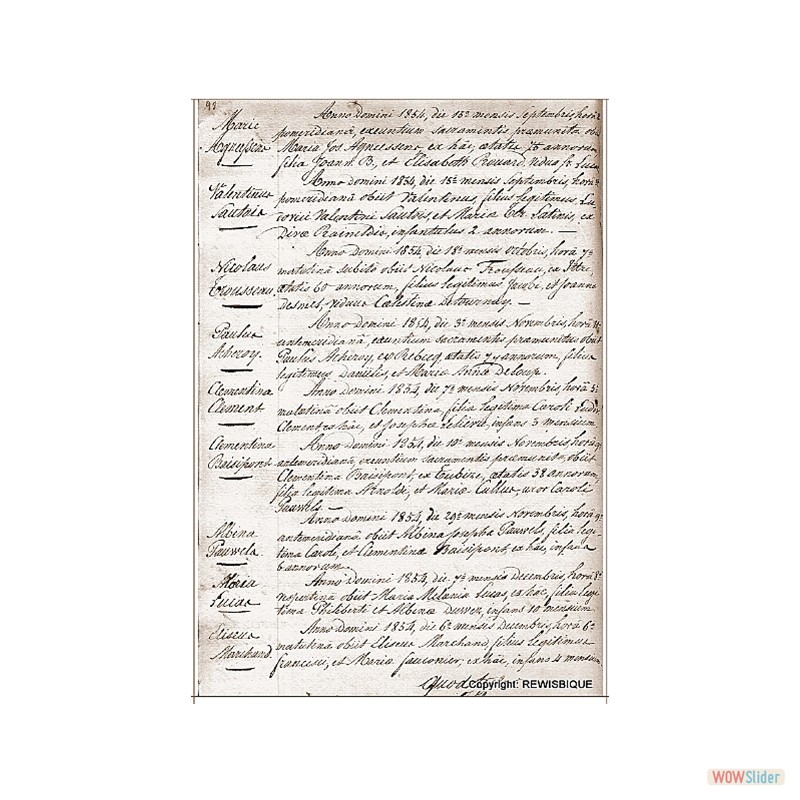 93
Marie
Aquessene
Anno Domini 1854, die 15ª mensis Septembris, horâ
pomeridianâ, exeuntium sacramentis præmunita, ob
Maria Jos Aquessene, ex hâc, ætatis 75 annorum
filia Joann B., et Elisabeth vidua
Valentinus
Sautois
Anno Domini 1854, die 15ª mensis Septembris, horâ
pomeridianâ obiit Valentinus, filius legitimus Lu
dovici Valentini Sautois, et Maria Latinis, ex
Divæ Raineldis, infantulus 2 annorum. —
Nicolaus
Trousseau
Anno Domini 1854 die 18ª mensis Octobris, horâ 7ª
matutinâ subito obiit Nicolaus Trousseau, ex
ætatis 60 annorum, filius legitimus Jacobi, et Joanna
Desmet, viduus Cælestina Detournay. —
Paulus
Acheroy.
Anno Domini 1854, die 3ª mensis Novembris, horâ
antimeridianâ, exeuntium sacramentis præmunitus obiit
Paulus Acheroy, ex Rebecq, ætatis 77 annorum, filius
legitimus Danielis, et Maria Anna Deloup.
Clementina
Clement
Anno Domini 1854, die 7ª mensis Novembris, horâ 5ª
matutinâ obiit Clementina, filia legitima Caroli
Clement ex hâc, et Josepha Lelièvre, infans 3 mensium
Clementina
Baisipont
Anno Domini 1854, die 10ª mensis Novembris, horâ 9
antemeridianâ, exeuntium sacramentis præmunita, obiit
Clementina Baisipont, ex Tubize, ætatis 38 annorum,
filia legitima Arnoldi, et Maria uxor Caroli
Pauwels. —
Albina
Pauwels.
Anno Domini 1854, die 29ª mensis Novembris, horâ 9ª
antimeridianâ obiit Albina Josepha Pauwels, filia legi
tima Caroli, et Clementina Baisipont, ex hâc, infans
6 annorum.
Maria
Lucas
Anno Domini 1854, die 7ª mensis Decembris, horâ 8ª
vespertinâ obiit Maria Melania Lucas, ex hâc, filia legi
tima Philiberti et Albina infans 10 mensium.
Eliseus
Marchand.
Anno Domini 1854, die 6ª mensis Decembris, horâ 6ª
matutinâ obiit Eliseus Marchand, filius legitimus
Francisci, et Maria Fauconier, ex hâc, infans 4 mensium
Quod
Copyright: REWISBIQUE
WOWSlider